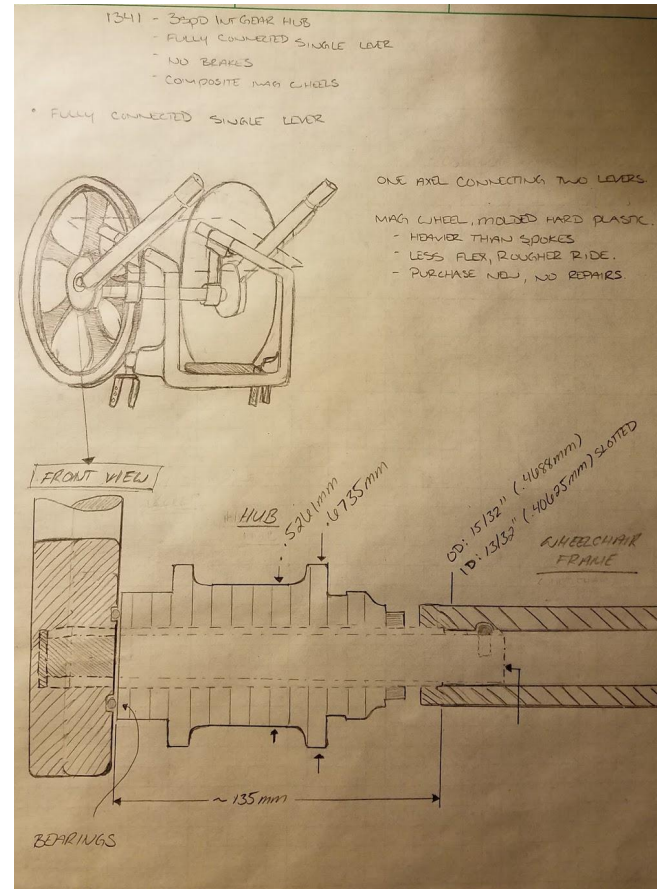 1341 - 3SPD INT GEAR HUB
- FULLY CONNECTED SINGLE LEVER
- NO BRAKES
- COMPOSITE MAG WHEELS
* FULLY CONNECTED SINGLE LEVER
ONE AXEL CONNECTING TWO LEVERS.
MAG WHEEL, MOLDED HARD PLASTIC.
- HEAVIER THAN SPOKES
- LESS FLEX, ROUGHER RIDE.
- PURCHASE NEW, NO REPAIRS.
FRONT VIEW
HUB
.5261mm
.6735mm
OD: 15/32" (.4688mm)
ID: 13/32" (.40625mm) SLOTTED
WHEELCHAIR
FRAME
~ 135mm
BEARINGS